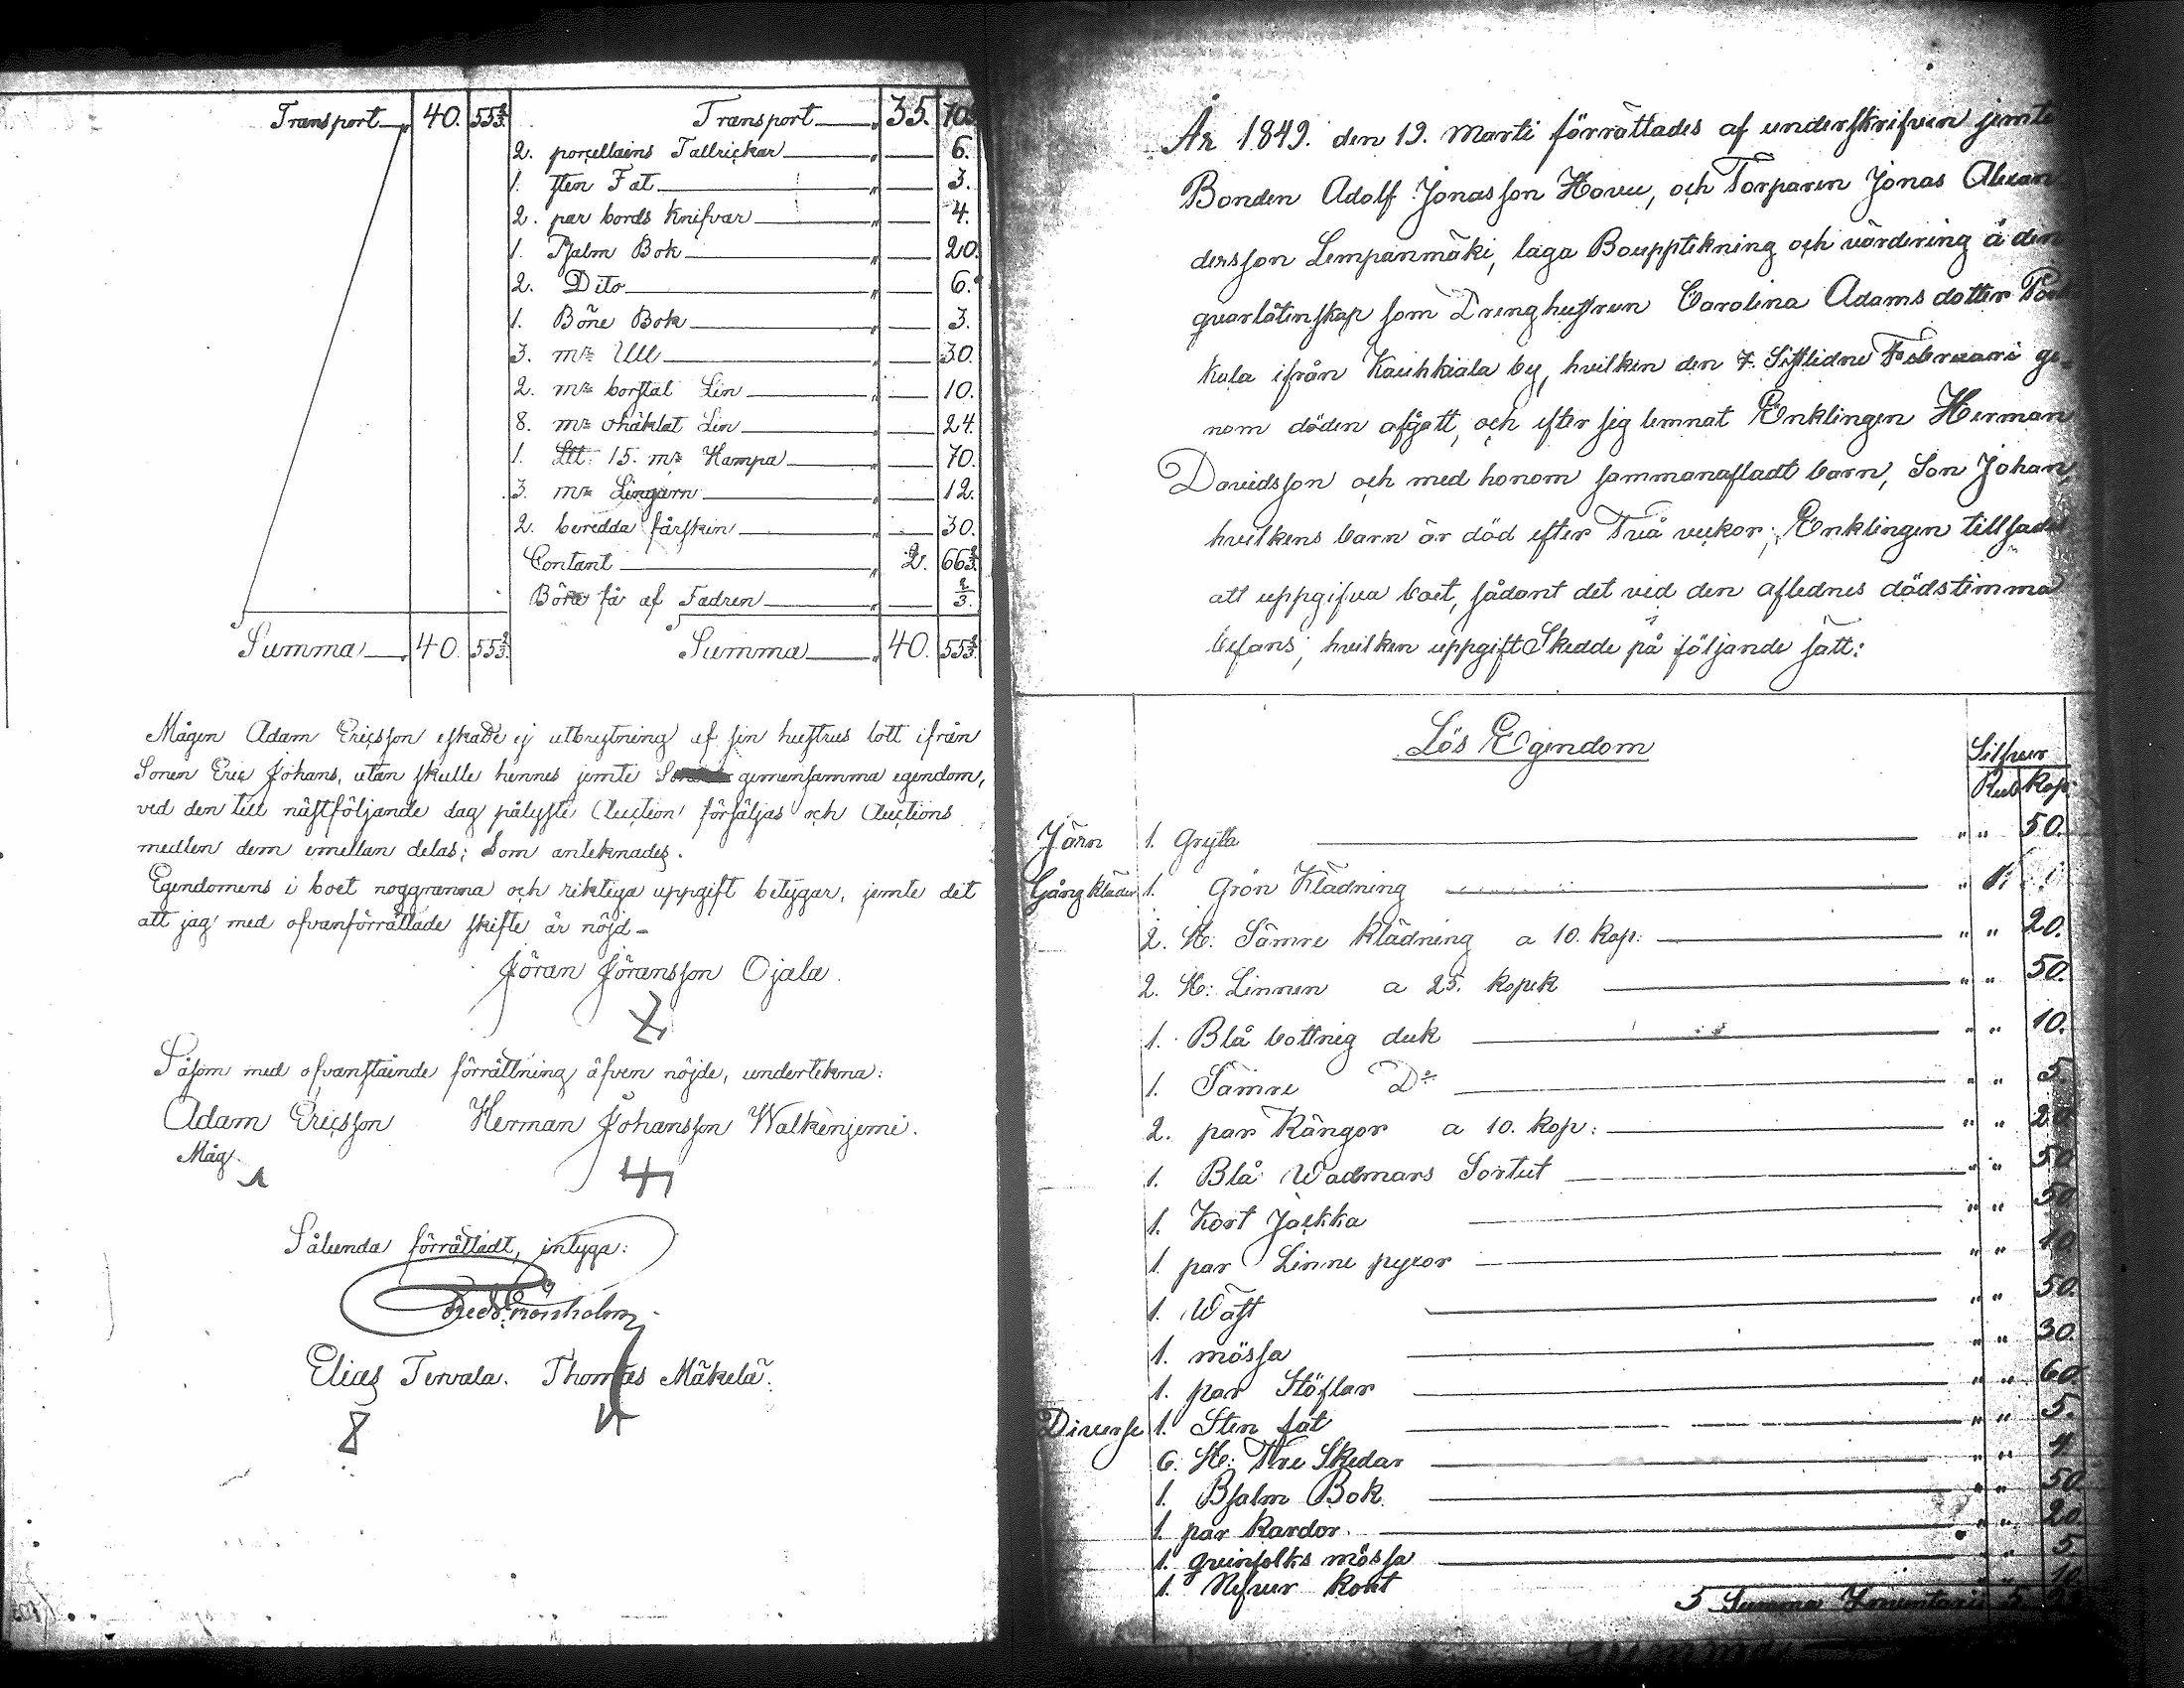 Transport 40. 55⅔.
Transport 35. 70.
2. porcellains Tallrickar 6.
1. sten Fat 3.
2. par bords Knifvar 4.
1. Psalm Bok 20.
2. Dito 6.
1. Böne Bok 3.
3. mk Ull 30.
2. mk borstat Lin 10.
8. mk ohäklat Lin 24.
1. Ltt: 15. mk Hampa 70.
3. mk Lingarn 12.
2. beredda fårskin 30.
Contant 2. 66⅔.
Böra få af Fadren ⅔.
Summa 40. 55⅔.
Summa 40. 55⅔.
Mågen Adam Ericsson eskade ej utbrytning af sin hustrus lott ifrån
Sonen Eric Johans, utan skulle hennes jemte gemensamma egendom,
ved den till nästföljande dag pålyste Auction försäljas och Auctions
medlen dem emellan delas; Som anteknades.
Egendomens i boet noggranna och riktiga uppgift betygar, jemte det
att jag med ofvanförrättade skifte är nöjd –
Jöran Jöransson Ojala.
Såsom med ofvanstående förrättning äfven nöjde, undertekna:
Adam Ericsson Herman Johansson Walkenjemi.
Måg.
Sålunda förrättadt, intyga:
Elias Tervala. Thomas Mäkelä.
År 1849. den 19. Marti förrättades af underskrifven jemte
Bonden Adolf Jonasson Hovu, och Torparen Jonas Alexan
dersson Lempanmäki, laga Bouppteckning och värdering å den
qvarlåtenskap som Drenghustrun Carolina Adamsdotter
kula ifrån Kauhkiala by, hvilken den 7. Sistlidne Februari ge-
nom döden afgått, och efter sig lemnat Enklingen Herman
Davidsson och med honom sammanafladt barn, Son Johan,
hvilkens barn är död efter Två veckor; Enklingen tillsades
att uppgifva boet, sådant det vid den aflednes dödstimma
befans; hvilken uppgift Skedde på följande sätt:
Lös Egendom
Silfver
Rub Kop:
Järn 1. Gryta " " 50.
Gång kläder 1. Grön Klädning " 1.
2. St: Sämre klädning a 10. Kop: " " 20.
2. St: Linnen a 25. kopek " " 50.
1. Blå bottnig duk " " 10.
1. Sämre Do " " 5.
2. par Kängor a 10. kop: " " 20
1. Blå Wadmars Sortut " " 50
1. Kort Jackka " " 50
1. par Linne pyxor " " 10
1. Wäst " " 50.
1. mössa " " 30.
1. par Stöflar " " 60.
Diverse 1. Sten fat " " 5.
6. St: Tre Skedar " " 4.
1. Bsalm Bok " " 50
1. par Kardor. " " 20
1. qvinfolks mössa " " 5.
1. Nefver Kont " " 10.
5 Summa Inventarie 5